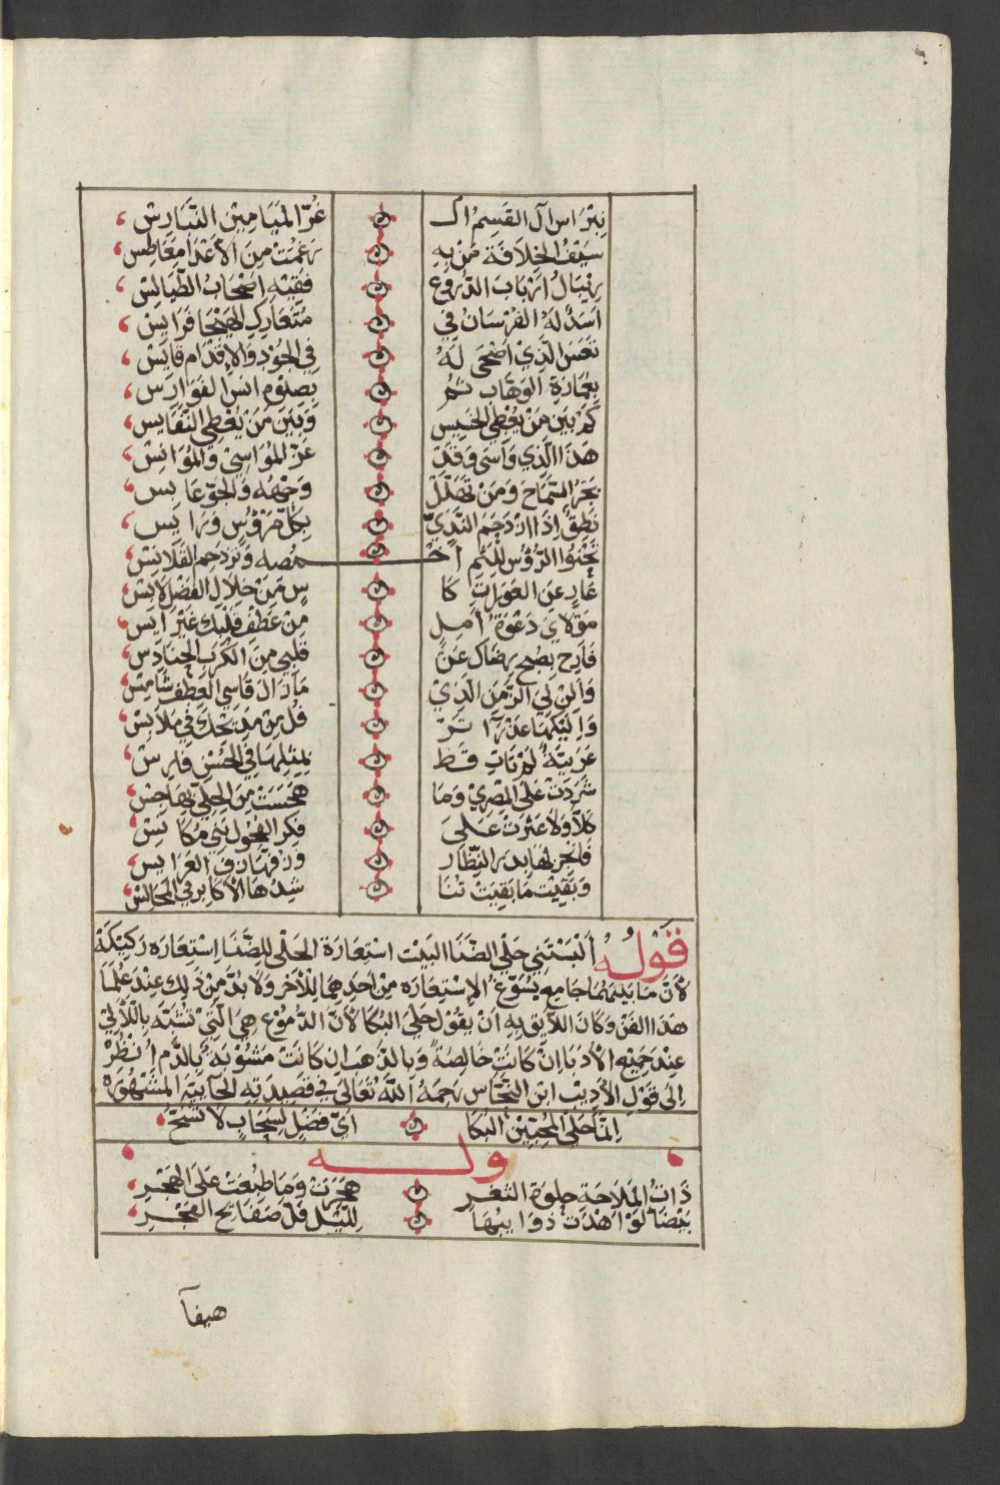 نبراس آل القسم ال غر الميامين النبارس
سيف الخلافة من به رغمت من الأعدا معاطس
ريبال ارباب الدروع فقيه اصحاب الطيالس
اسد له الفرسان في متعارك الهيجا فرايس
تعس الذي اضحى له في الجود والاقدام قايس
بعمارة الوهاب ثم بصلوم انس الفوارس
كم بين من يعطي الخسيس وبين من يعطي النفايس
هذا الذي واسى وقد عز المواسي والموانس
بحر السماح ومن تهلل وجهه والجو عابس
نطق اذا ازدحم الندي بكل مرؤس ورايس
تجثوا الرؤس للثم أخـمصه وتزدحم القلانس
عار عن العورات كا س من خلال الفضل لابس
مولاي دعوة امل من عطف قلبك غير ايس
فارح بصبح رضاك عن قلبي من الكرب الحنادس
وألن لي الزمن الذي ما زال قاسي العطف شامس
واليكها عذرآ تر فل من مديحك في ملابس
عربية لم تات قط بمثلها في الحسن فارس
شردت على المصري وما هجست من الحلي بهاجس
كلا ولا عثرت على فكر الفحول بني مكانس
فانحر لها بدر النظار وزفها زف العرايس
وبقيت ما بقيت ثنا شدها الاكابر في المجالس
قوله البستني حلي الضنا البيت استعارة الحلي للضنا استعاره ركيكة
لان ما بينهما جامع يسوغ الاستعاره من احدهما للآخر ولا بد من ذلك عند علما
هذا الفن وكان اللايق به ان يقول حلي البكا لان الدموع هي التي تشبه باللآلي
عند جميع الادبا ان كانت خالصة وبالذهب ان كانت مشوبة بالدم انظر
الى قول الاديب ابن النحاس رحمه الله تعالى في قصيدته الحآيية المشهوره
انما حلي المحبين البكا اي فضل لسحاب لا تسح
وله
ذات الملاحة حلوة الثغر هجرت وما طبعت على الهجر
بيضا لو اهدت ذوايبها لليل فل صفايح الفجر
هيفآ